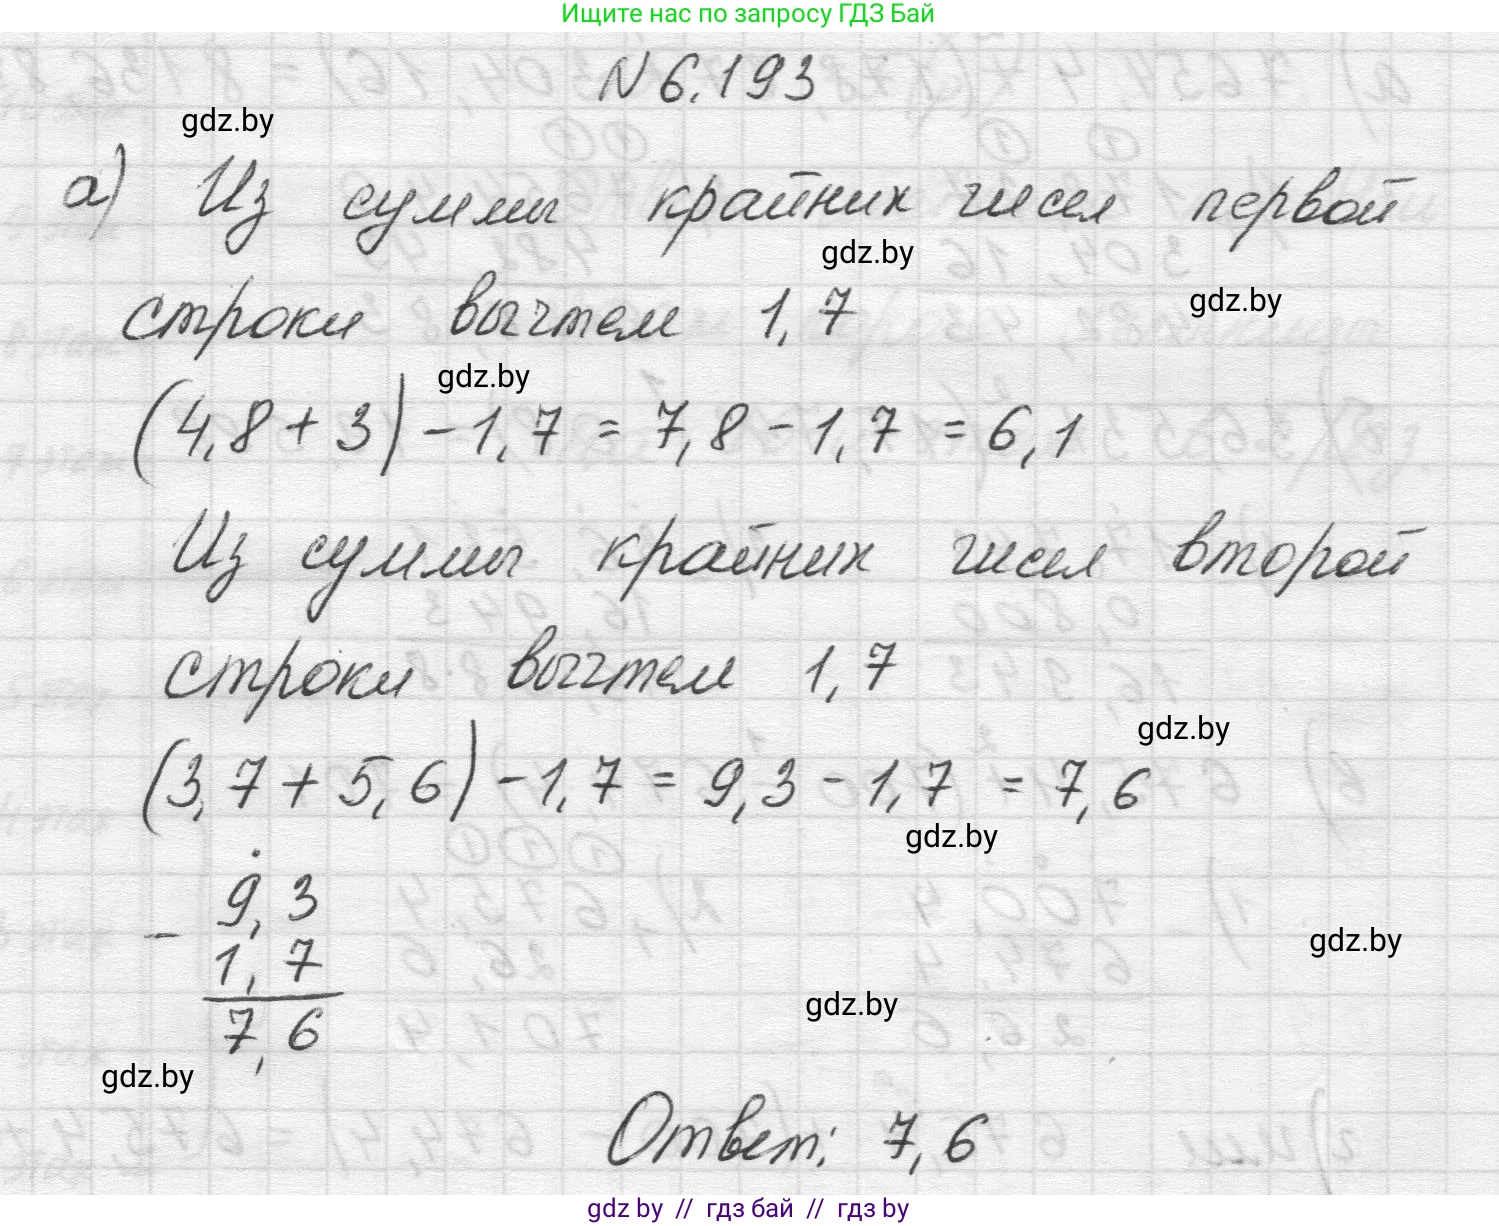 Ищите нас по запросу ГДЗ Бай
N 6.193
gdz.by
а) Из суммы крайних чисел первой
gdz.by
строки вычтем 1,7
gdz.by
gdz.by
(4,8 + 3) - 1,7 = 7,8 - 1,7 = 6,1
Из суммы крайних чисел второй
строки вычтем 1,7
gdz.by
(3,7 + 5,6) - 1,7 = 9,3 - 1,7 = 7,6
gdz.by
9,3
-
1,7
7,6
gdz.by
gdz.by
gdz.by
Ответ: 7,6
gdz by // гдз бай // гдз by